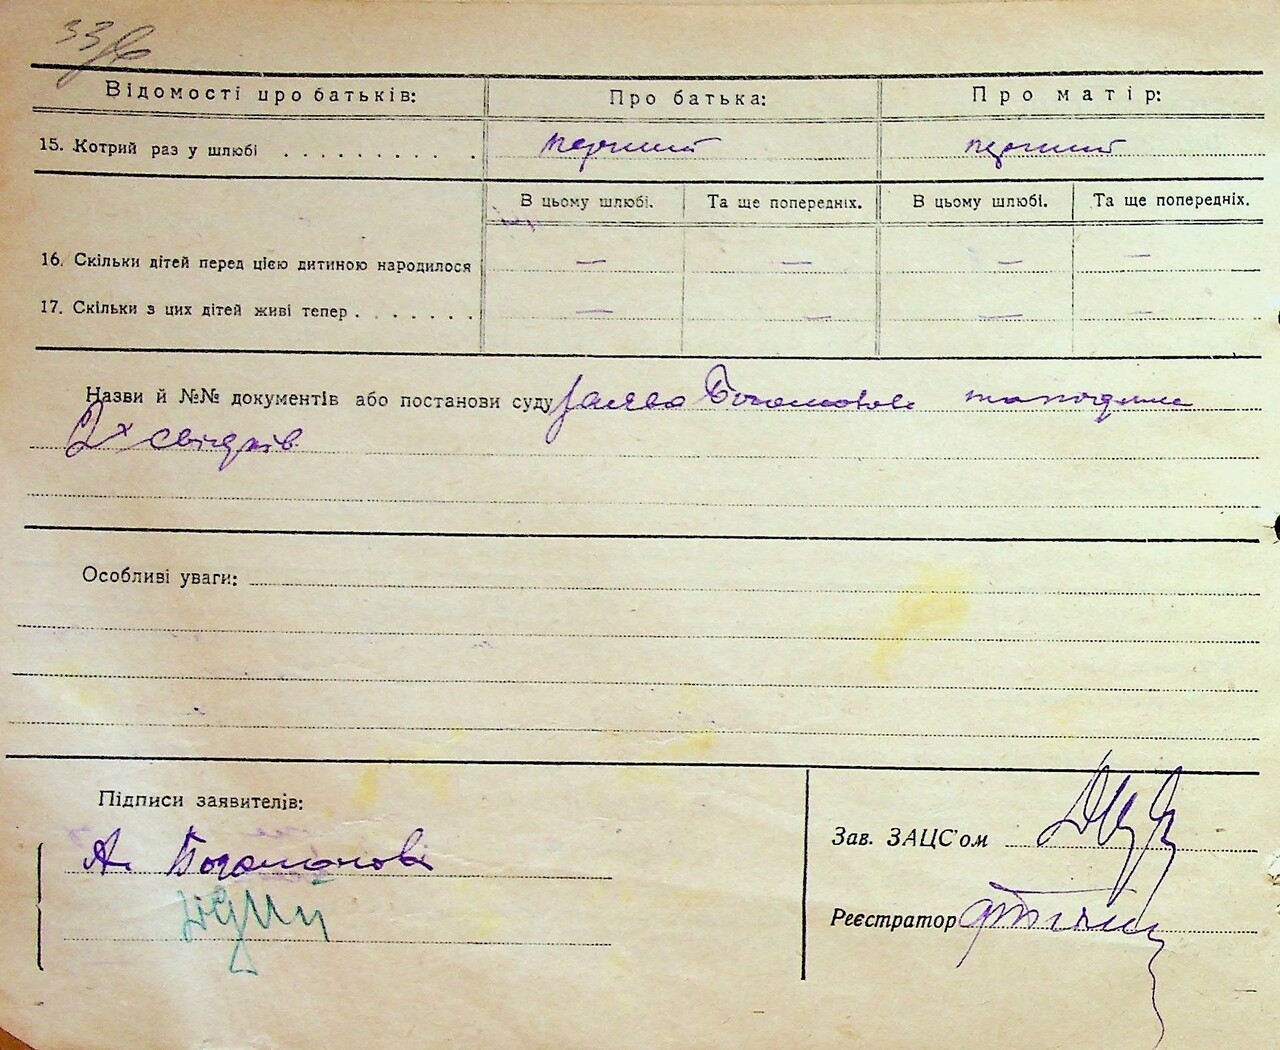 33
Відомості про батьків: Про батька: Про матір:
15. Котрий раз у шлюбі . . . . . . . . . . перший перший
В цьому шлюбі. Та ще попередніх. В цьому шлюбі. Та ще попередніх.
16. Скільки дітей перед цією дитиною народилося — — — —
17. Скільки з цих дітей живі тепер . . . . . . . — — — —
Назви й №№ документів або постанови суду заява
2х свідків
Особливі уваги:
Підписи заявителів:
Зав. ЗАЦС'ом
А.
Реєстратор